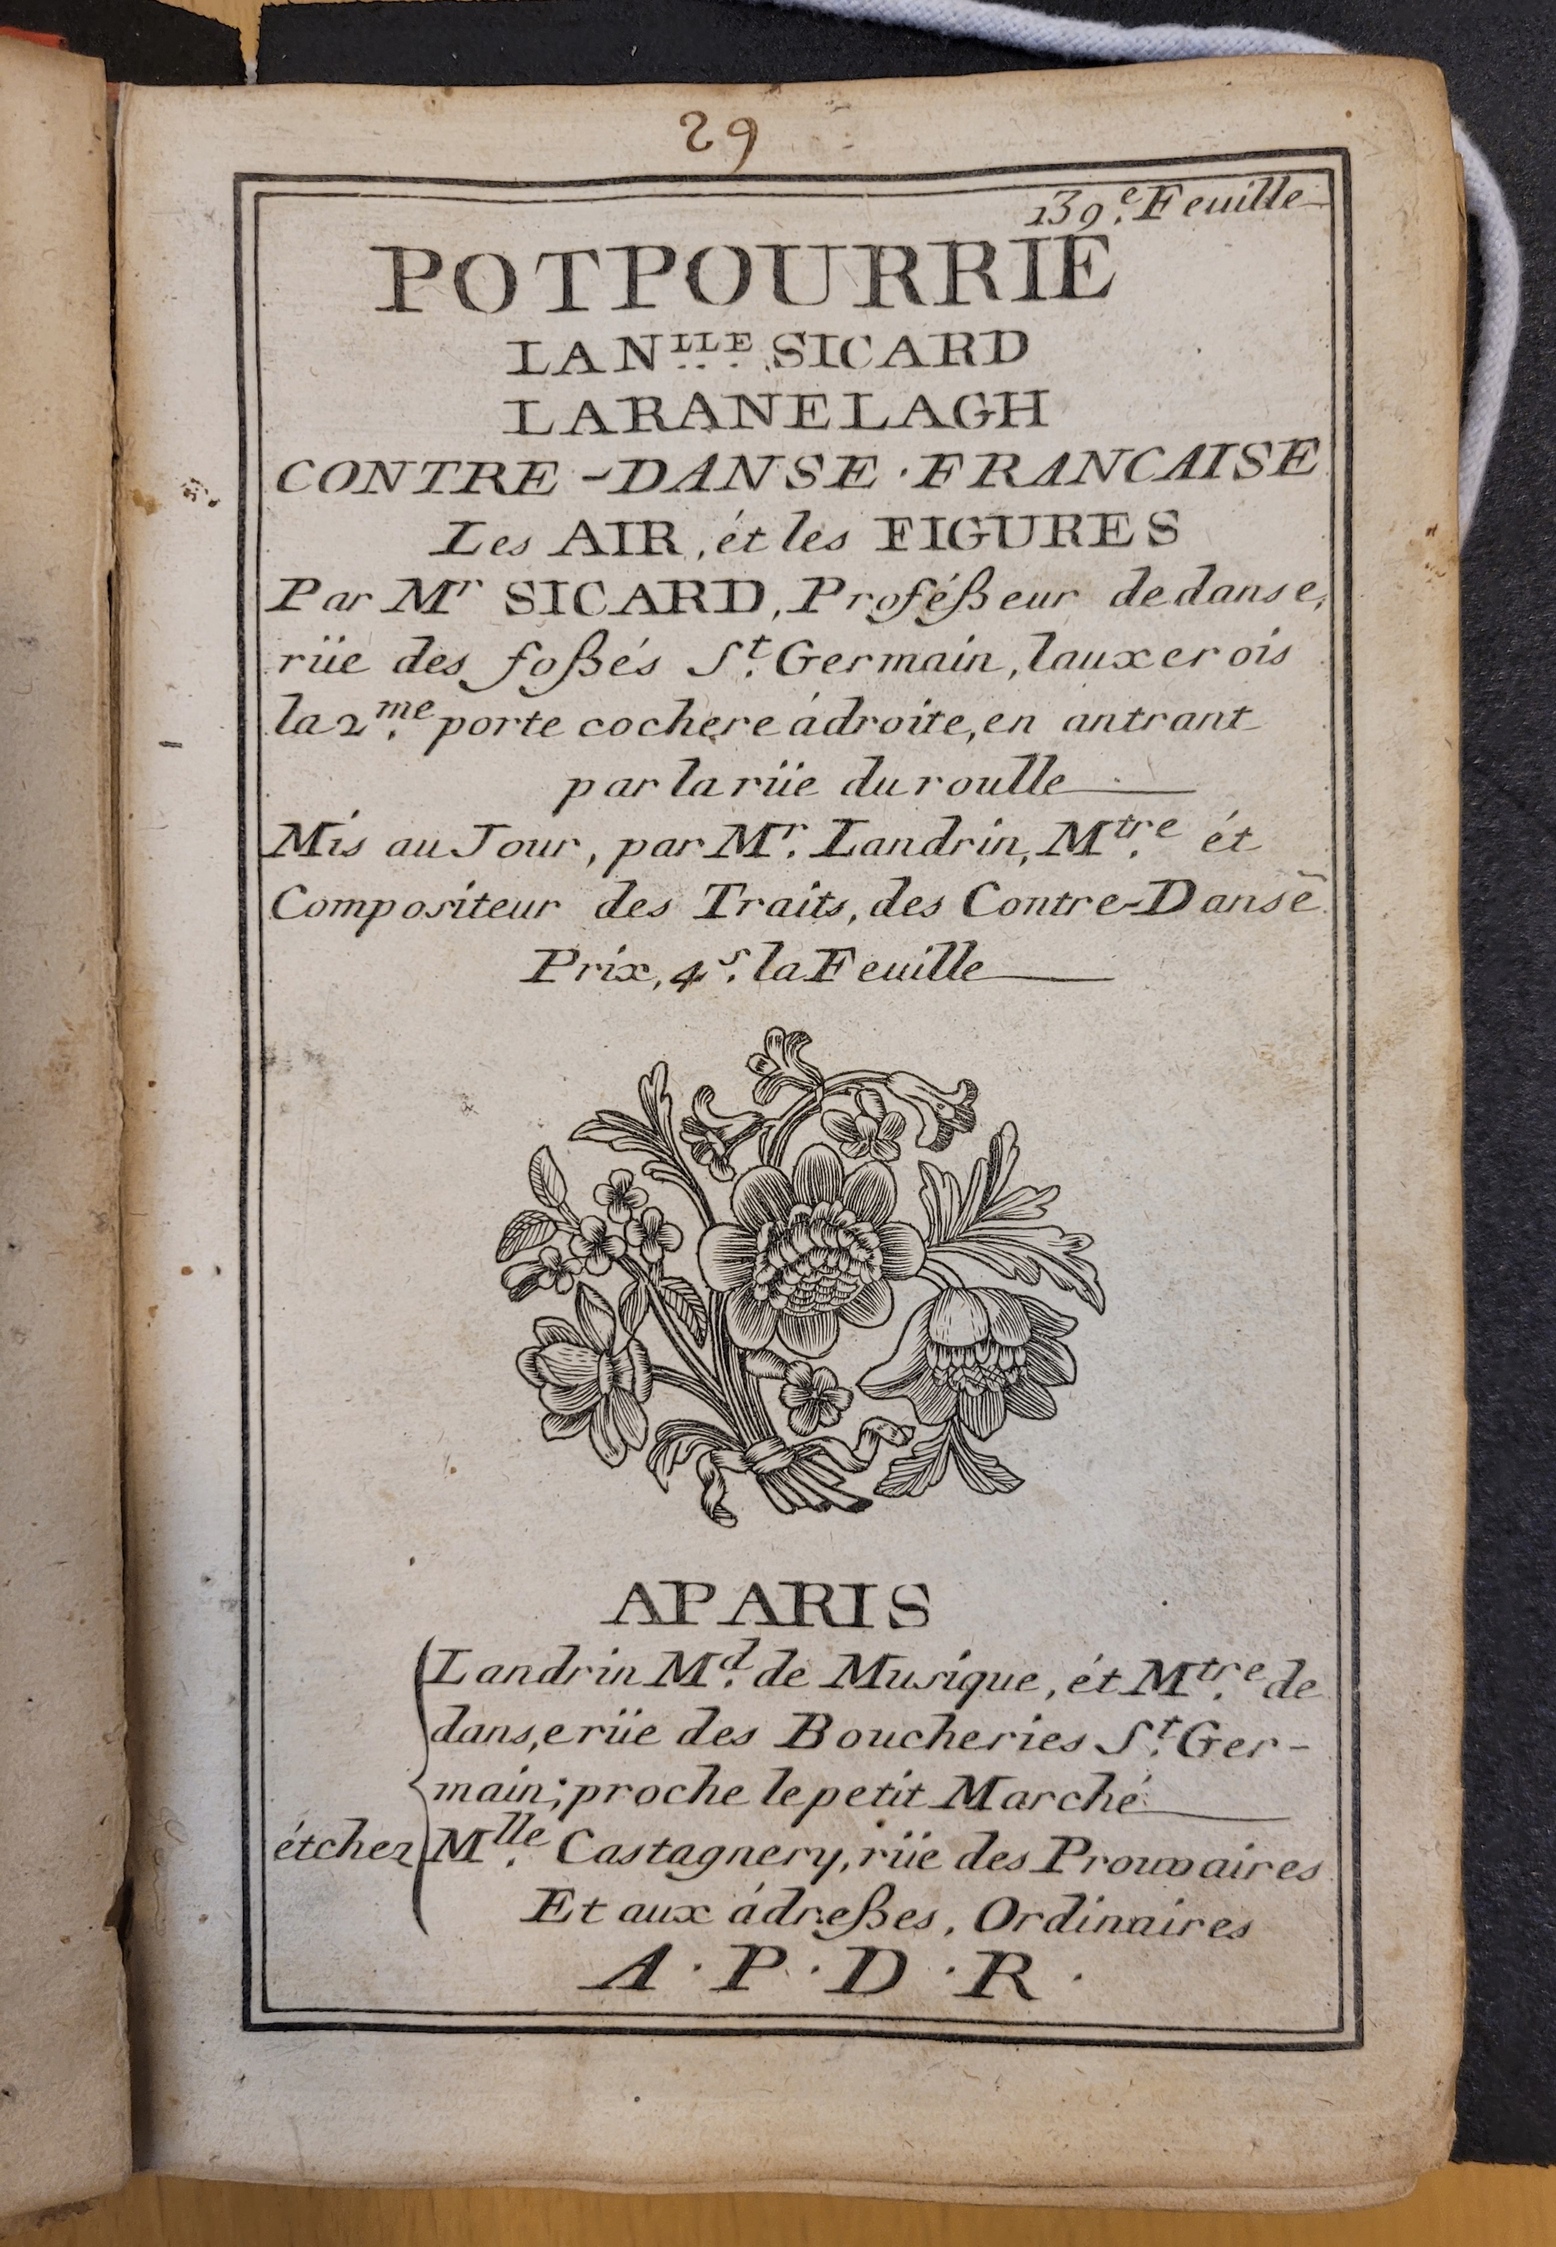 29
139.e Feuille
POTPOURRIE
LA NLLE SICARD
LA RANELAGH
CONTRE-DANSE · FRANCAISE
Les AIR, ét les FIGURES
Par Mr SICARD, Proféßeur de danse,
rüe des foßés St. Germain, lauxerois
la 2.me porte cochere á droite, en antrant
par la rüe du roulle
Mis au Jour, par Mr. Landrin, Mtre. ét
Compositeur des Traits, des Contre-Danse
Prix, 4s. la Feuille
A PARIS
Landrin Md. de Musique, ét Mtre. de
dans,e rüe des Boucheries St. Ger-
main; proche le petit Marché
ét chez Mlle. Castagnery, rüe des Prouvaires
Et aux ádreßes, Ordinaires
A · P · D · R ·